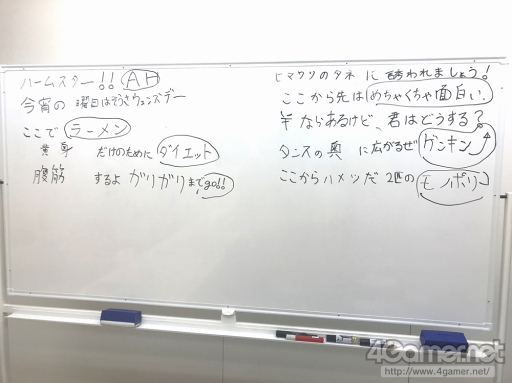 ハームスター!! AH
今宵の 曜日はそうさウェンズデー
ここで ラーメン
だけのために ダイエット
腹筋 するよ ガリガリまでgo!!
ヒマワリのタネ に 誘われましょう!
ここから先は めちゃくちゃ面白い.
¥ならあるけど、君はどうする?
タンスの奥 に広がるぜ ゲンキン
ここからハメツだ 2匹の モノポリー
4Gamer.net
http://www.4gamer.net/